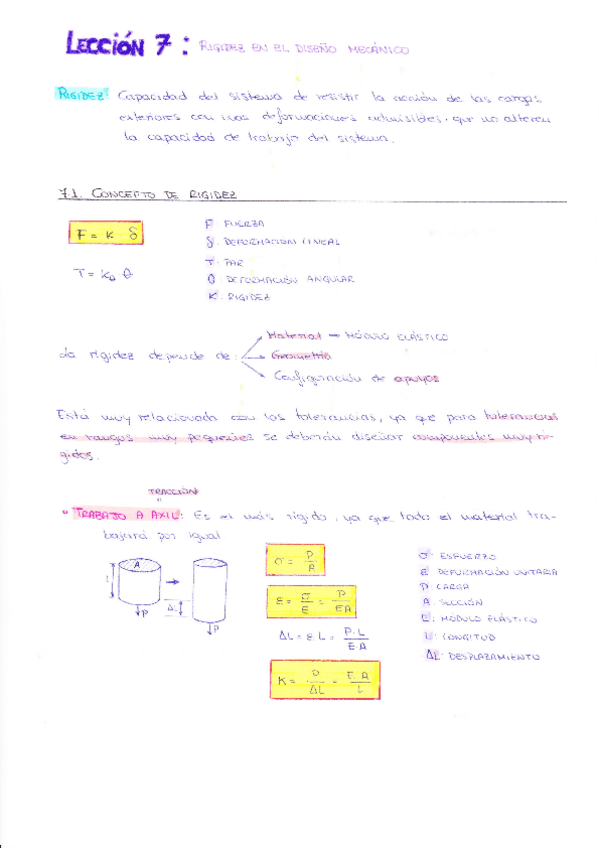 LECCIÓN 7: RIGIDEZ EN EL DISEÑO MECÁNICO
RIGIDEZ: Capacidad del sistema de resistir la acción de las cargas
exteriores con unas deformaciones admisibles, que no alteren
la capacidad de trabajo del sistema.
7.1. CONCEPTO DE RIGIDEZ
F = K · δ
T = Kθ θ
F: FUERZA
δ: DEFORMACIÓN LINEAL
T: PAR
θ: DEFORMACIÓN ANGULAR
K: RIGIDEZ
La rigidez depende de:
Material → MÓDULO ELÁSTICO
Geometría
Configuración de apoyos
Está muy relacionada con las tolerancias, ya que para tolerancias
en rangos muy pequeños se deberán diseñar componentes muy rí-
gidos.
TRACCIÓN
"
• TRABAJO A AXIL: Es el más rígido, ya que todo el material tra-
bajará por igual
A
L
ΔL
P
P
σ = P/A
ε = σ/E = P/EA
ΔL = ε·L = P·L/E·A
K = P/ΔL = E·A/L
σ: ESFUERZO
ε: DEFORMACIÓN UNITARIA
P: CARGA
A: SECCIÓN
E: MÓDULO ELÁSTICO
L: LONGITUD
ΔL: DESPLAZAMIENTO